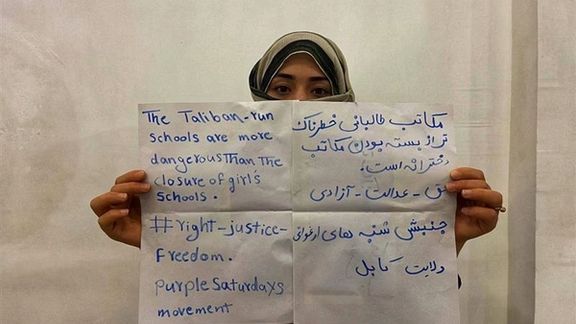 The Taliban-run
schools are more
dangerous Than the
closure of girl's
schools.
#right-justice-
Freedom.
purple Saturdays
movement
مکاتب طالبانی خطرناک
تر از بسته بودن مکاتب
دخترانه است.
حق - عدالت - آزادی
جنبش شنبه های ارغوانی
ولایت کابل